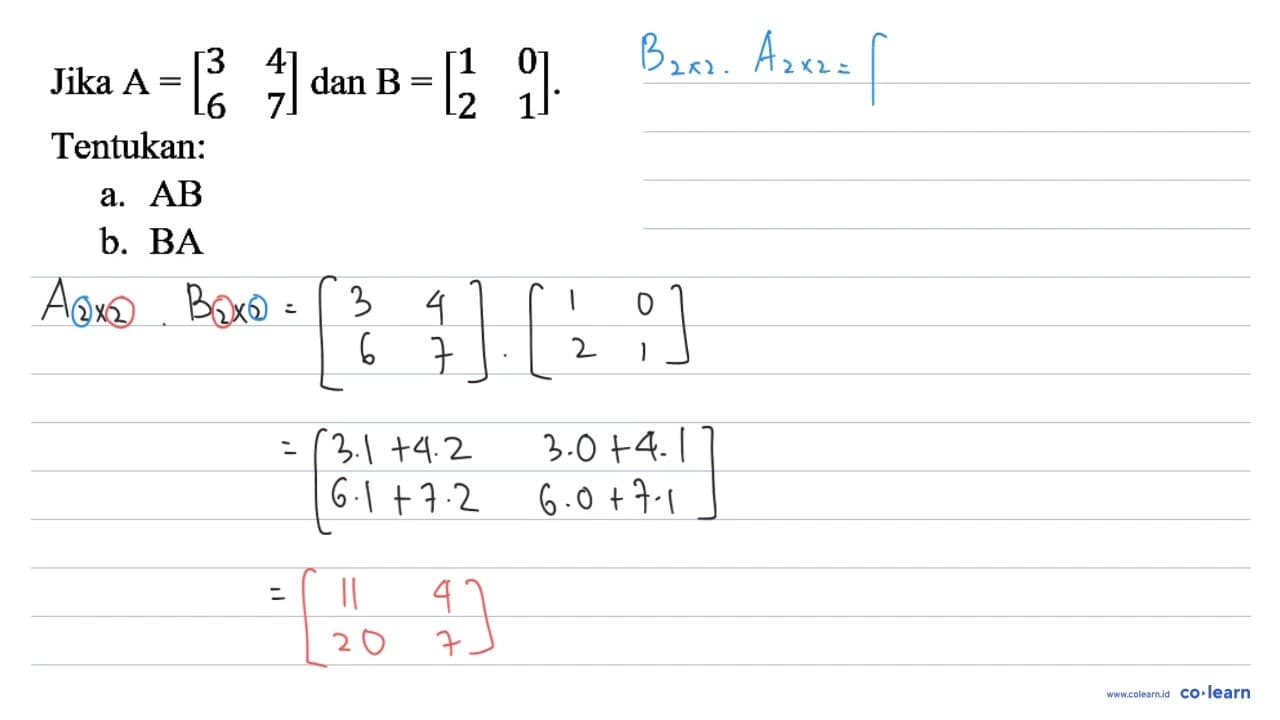 Jika A = [3 4 dan B = [1 0
6 7] 2 1].
Tentukan:
a. AB
b. BA
B2×2 . A2×2 = [
A2×2 . B2×2 = [3 4 . [1 0
6 7] 2 1]
= [3.1 + 4.2 3.0 + 4.1
6.1 + 7.2 6.0 + 7.1]
= [11 4
20 7]
www.colearn.id co·learn